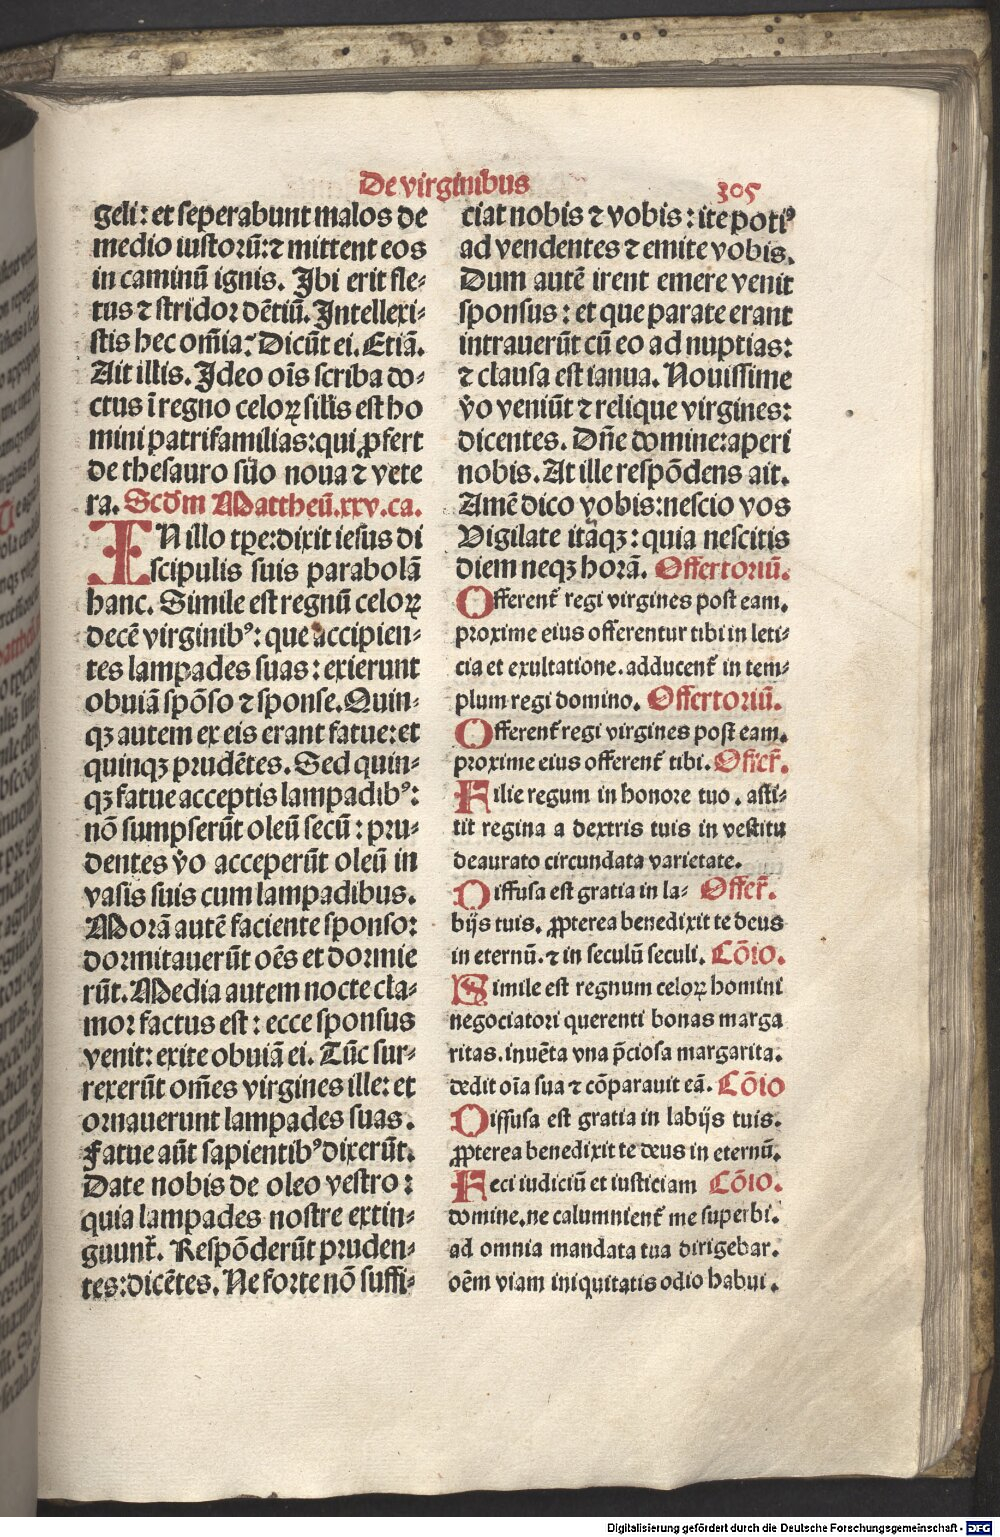 De virginibus
305
geli: et seperabunt malos de
medio iustorū: ⁊ mittent eos
in caminū ignis. Ibi erit fle-
tus ⁊ stridor dētiū. Intellexi-
stis hec om̄ia? Dicūt ei. Etiā.
Ait illis. Ideo oīs scriba do-
ctus ī regno celoꝝ sil̄is est ho
mini patrifamilias: qui ꝓfert
de thesauro suo noua ⁊ vete
ra. Scd̄m Mattheū. xxv. ca.
IN illo tp̄e: dixit iesus di
scipulis suis parabolā
hanc. Simile est regnū celoꝝ
decē virginibꝰ: que accipien-
tes lampades suas: exierunt
obuiā spōso ⁊ sponse. Quin-
qꝫ autem ex eis erant fatue: et
quinqꝫ prudētes. Sed quin-
qꝫ fatue acceptis lampadibꝰ:
nō sumpserūt oleū secū: pru-
dentes v̄o acceperūt oleū in
vasis suis cum lampadibus.
Morā autē faciente sponso:
dormitauerūt oēs et dormie
rūt. Media autem nocte cla-
mor factus est: ecce sponsus
venit: exite obuiā ei. Tūc sur-
rexerūt om̄es virgines ille: et
ornauerunt lampades suas.
Fatue aūt sapientibꝰ dixerūt.
Date nobis de oleo vestro:
quia lampades nostre extin-
guunt᷑. Respōderūt pruden-
tes: dicētes. Ne forte nō suffi-
ciat nobis ⁊ vobis: ite potiꝰ
ad vendentes ⁊ emite vobis.
Dum autē irent emere venit
sponsus: et que parate erant
intrauerūt cū eo ad nuptias:
⁊ clausa est ianua. Nouissime
v̄o veniūt ⁊ relique virgines:
dicentes. Dn̄e domine: aperi
nobis. At ille respōdens ait.
Amē dico vobis: nescio vos
Vigilate itaqꝫ: quia nescitis
diem neqꝫ horā. Offertoriū.
Offerent᷑ regi virgines post eam.
proxime eius offerentur tibi in leti-
cia et exultatione. adducent᷑ in tem-
plum regi domino. Offertoriū.
Offerent᷑ regi virgines post eam.
proxime eius offerent᷑ tibi. Offer᷑.
Filie regum in honore tuo. asti-
tit regina a dextris tuis in vestitu
deaurato circundata varietate.
Diffusa est gratia in la- Offer᷑.
bijs tuis. ꝓpterea benedixit te deus
in eternū. ⁊ in seculū seculi. Cōio.
Simile est regnum celoꝝ homini
negociatori querenti bonas marga
ritas. inuēta vna p̄ciosa margarita.
dedit oīa sua ⁊ cōparauit eā. Cōio
Diffusa est gratia in labijs tuis.
ꝓpterea benedixit te deus in eternū.
Feci iudiciū et iusticiam Cōio.
domine. ne calumnient᷑ me superbi.
ad omnia mandata tua dirigebar.
oēm viam iniquitatis odio habui.
Digitalisierung gefördert durch die Deutsche Forschungsgemeinschaft - DFG